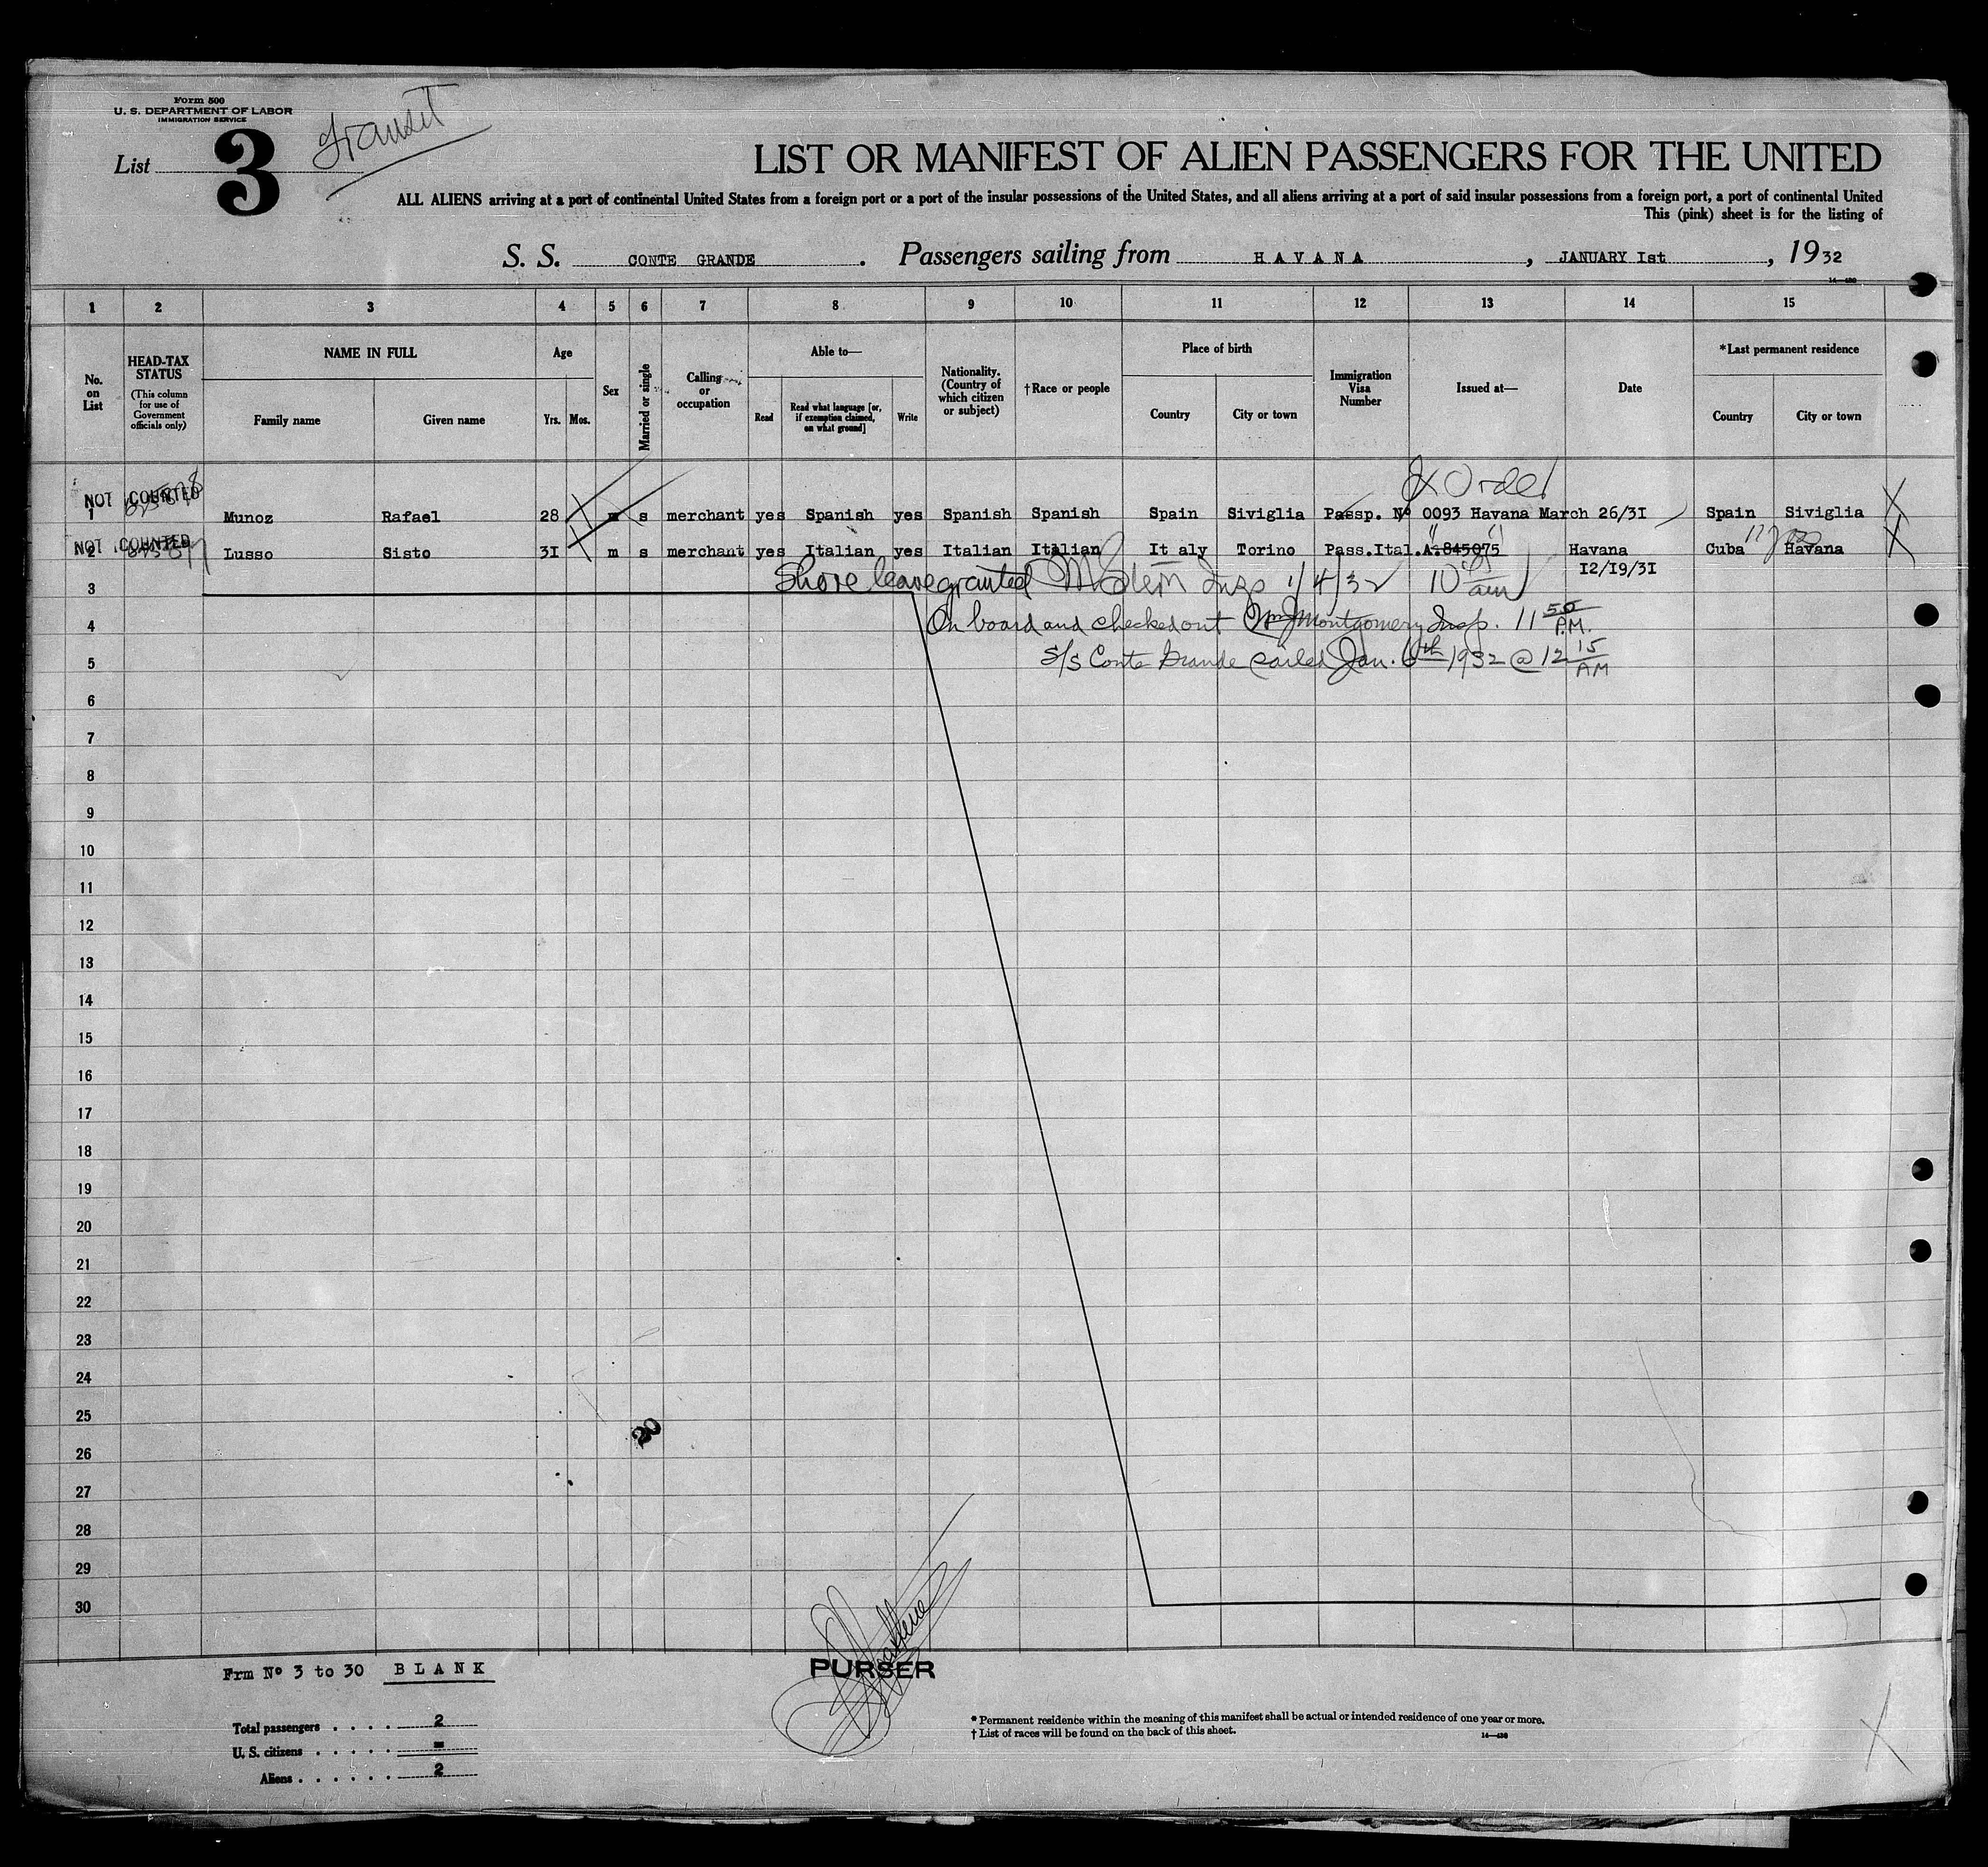 Form 500
U. S. DEPARTMENT OF LABOR
IMMIGRATION SERVICE
List 3 Transit
LIST OR MANIFEST OF ALIEN PASSENGERS FOR THE UNITED
ALL ALIENS arriving at a port of continental United States from a foreign port or a port of the insular possessions of the United States, and all aliens arriving at a port of said insular possessions from a foreign port, a port of continental United
This (pink) sheet is for the listing of
S. S. CONTE GRANDE . Passengers sailing from HAVANA , JANUARY Ist , 1932
1 2 3 4 5 6 7 8 9 10 11 12 13 14 15
No. on List
HEAD-TAX STATUS (This column for use of Government officials only)
NAME IN FULL
Family name Given name
Age
Yrs. Mos.
Sex
Married or single
Calling or occupation
Able to—
Read Read what language [or, if exemption claimed, on what ground] Write
Nationality. (Country of which citizen or subject)
†Race or people
Place of birth
Country City or town
Immigration Visa Number
Issued at—
Date
*Last permanent residence
Country City or town
Order
NOT COUNTED
1 Munoz Rafael 28 m s merchant yes Spanish yes Spanish Spanish Spain Siviglia Passp. Nº 0093 Havana March 26/3I Spain Siviglia
NOT COUNTED
2 Lusso Sisto 3I m s merchant yes Italian yes Italian Italian It aly Torino Pass.Ital.A.845075 Havana Cuba Havana
I2/I9/3I
3 Shore leave granted Insp 1/4/32 10 am
4 On board and checked out Wm J Montgomery Insp. 11 50 P.M.
5 S/S Conte Grande sailed Jan. 6th 1932 @ 12 15 AM
6
7
8
9
10
11
12
13
14
15
16
17
18
19
20
21
22
23
24
25
20
26
27
28
29
30
Frm Nº 3 to 30 BLANK
PURSER
Total passengers . . . . . 2
U. S. citizens . . . . . -
Aliens . . . . . . 2
* Permanent residence within the meaning of this manifest shall be actual or intended residence of one year or more.
† List of races will be found on the back of this sheet.